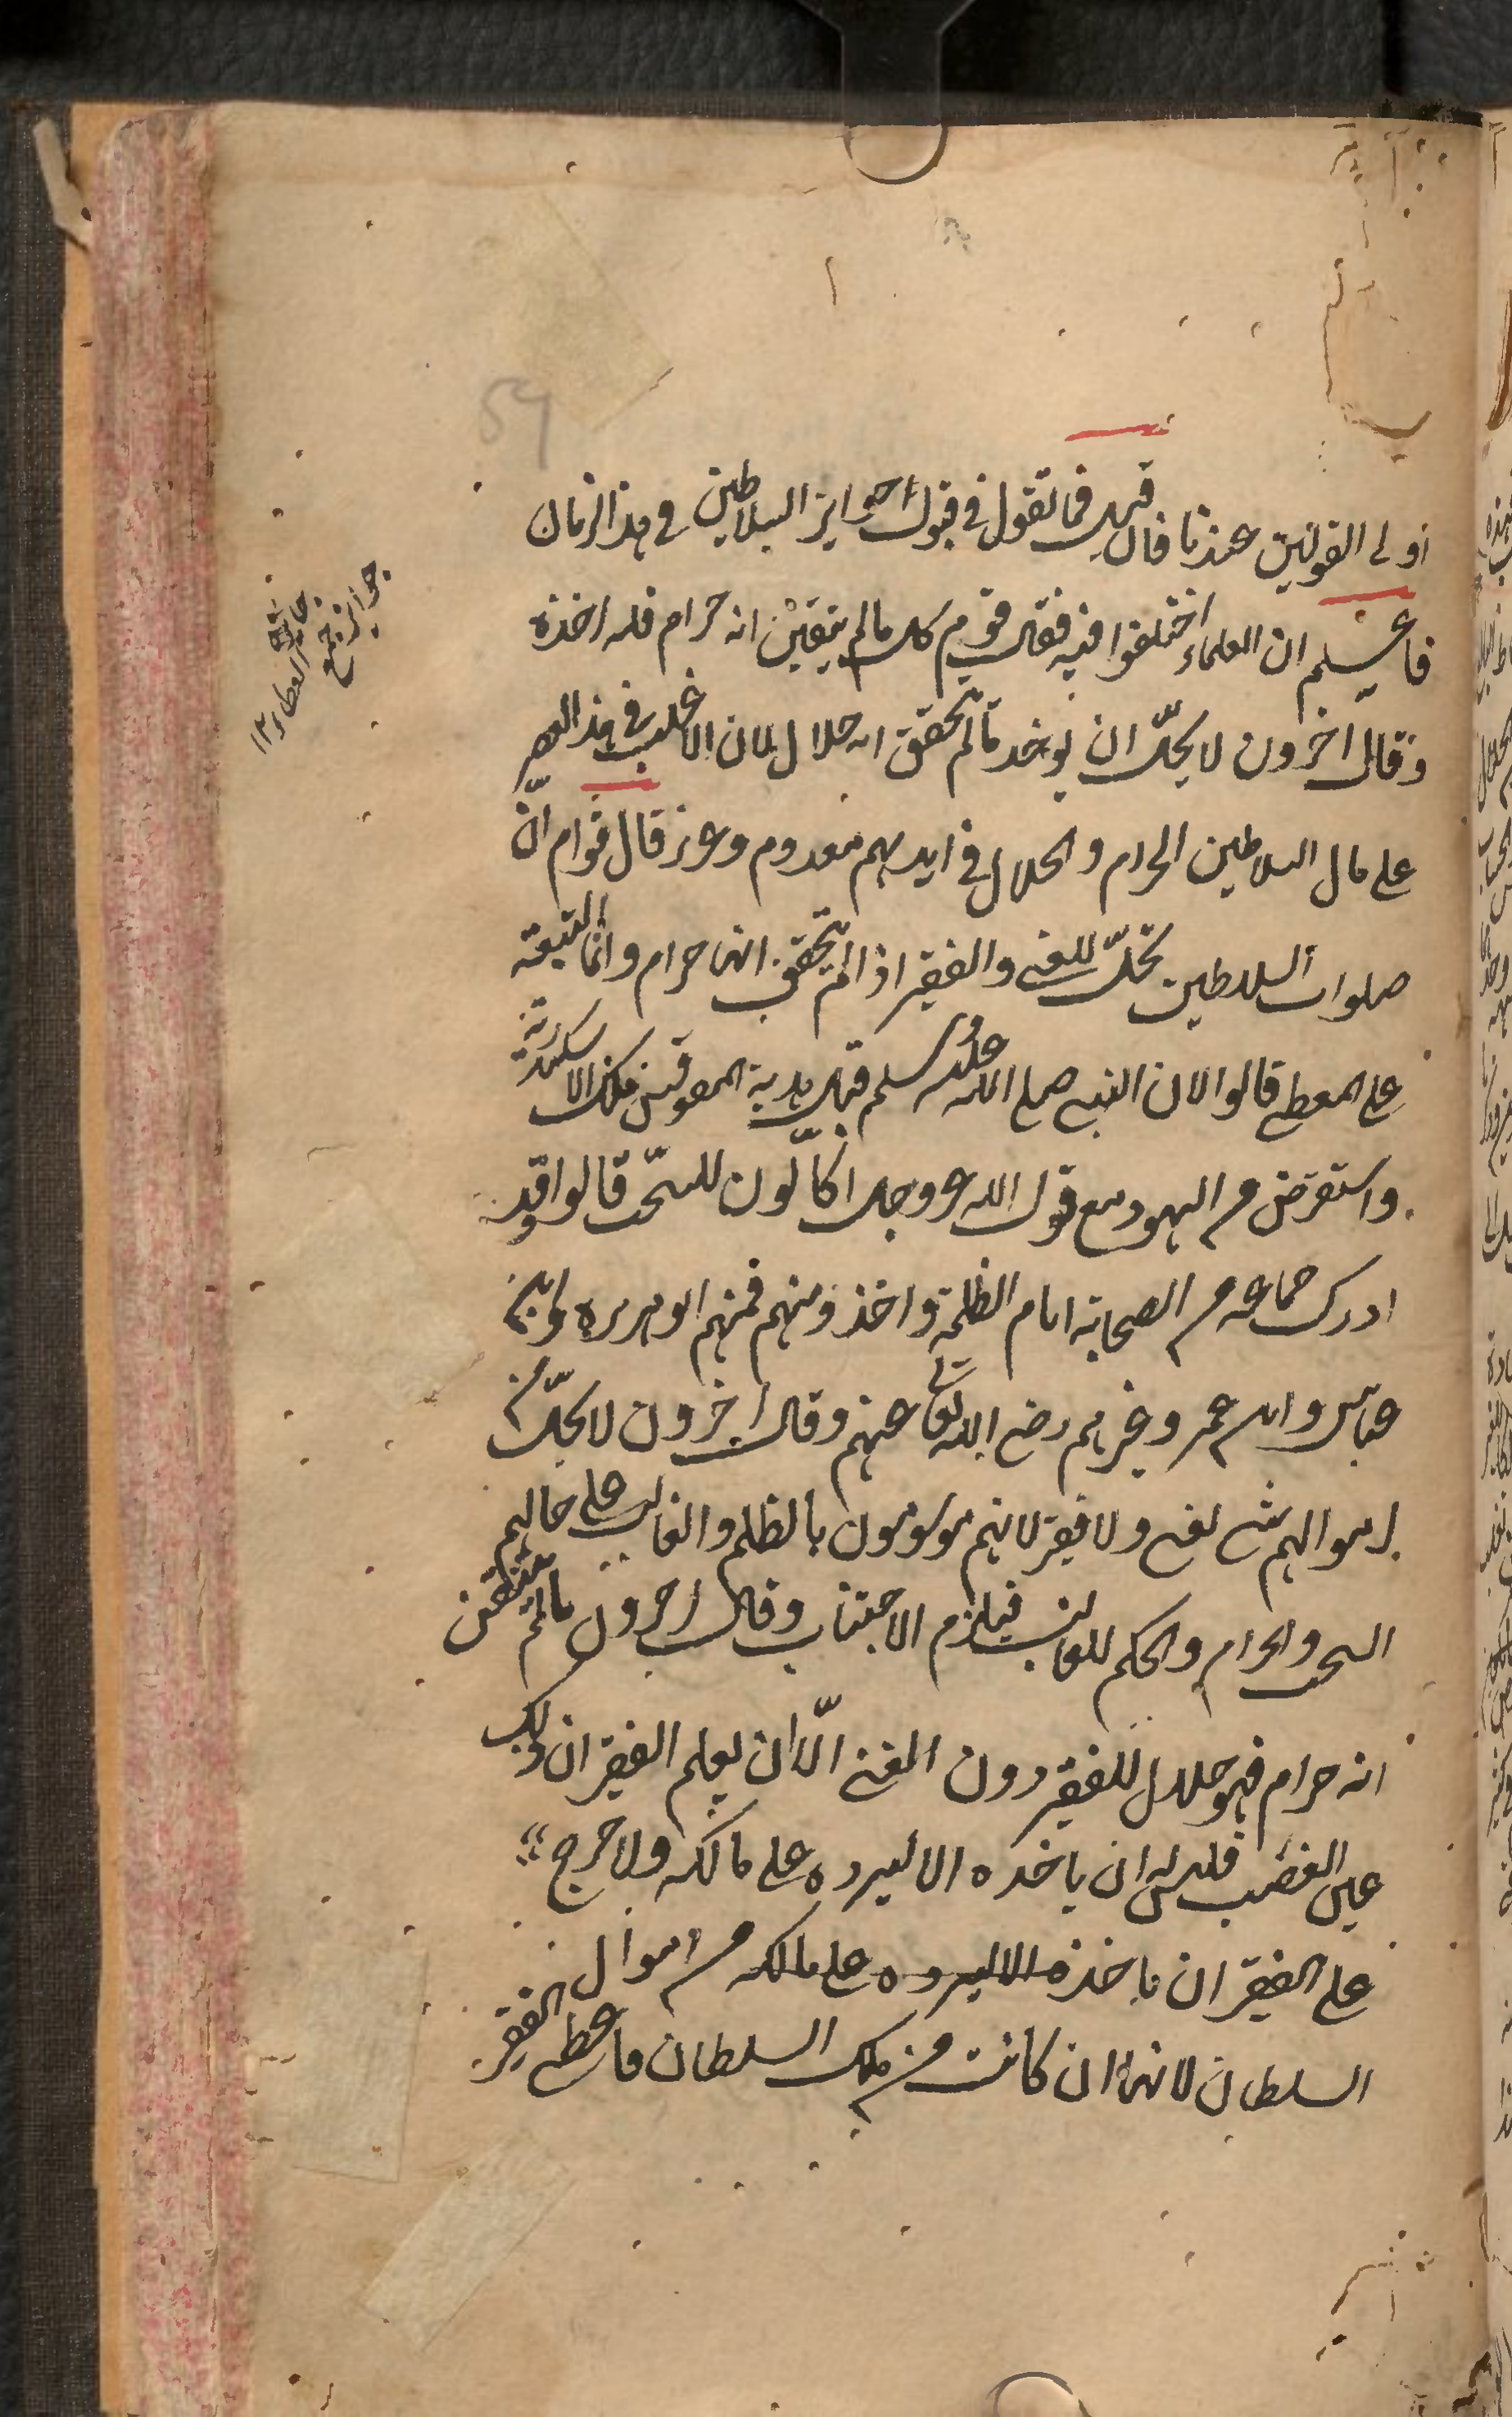 59
اولى القولين عندنا فان قيل فما تقول فى قبول جوايز السلاطين فى هذا الزمان
فاعلم ان العلماء اختلفوا فيه فقال قوم كل ما لم يتيقن انه حرام فله اخذه
وقال اخرون لا يحل ان يوخد ما لم تحقق انه حلال لان الاغلب فى هذا العصر
على مال السلاطين الحرام والحلال فى ايديهم معدوم وعزيز قال قوام ان
صلوات السلاطين تحل للغنى والفقير اذا لم تحقق انها حرام وانما التبعة
على المعطى قالوا لان النبى صلى الله عليه وسلم قبل هدية المقوقس ملك الاسكندرية
واستقرض من اليهود مع قول الله عز وجل اكّالون للسحت قالوا وقد
ادرك جماعة من الصحابة ايام الظلمة واخذو منهم فمنهم ابو هريره وابن
عباس وابن عمر وغيرهم رضى الله تعالى عنهم وقال اخرون لا يحل من
اموالهم شى لغنى ولا فقير لانهم موسومون بالظلم والغالب على مالهم
السحت والحرام والحكم للغالب فيلزم الاجتناب وقال اخرون ما لم يتيقن
انه حرام فهو حلال للفقير دون الغنى الّا ان يعلم الفقير ان ذلك
عين الغصب فليس له ان ياخده الا ليرده على مالكه ولا حرج
على الفقير ان ياخذه الا ليرده على مالكه من اموال
السلطان لانها ان كانت من ملك السلطان فاعطى الفقير
جوايز جمع
جايزه
العطاء ١٢